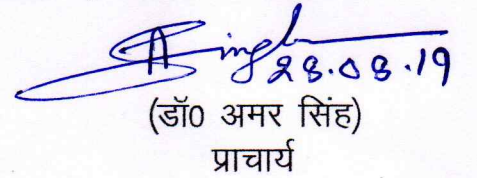 ASingh
28.08.19
(डॉ0 अमर सिंह)
प्राचार्य